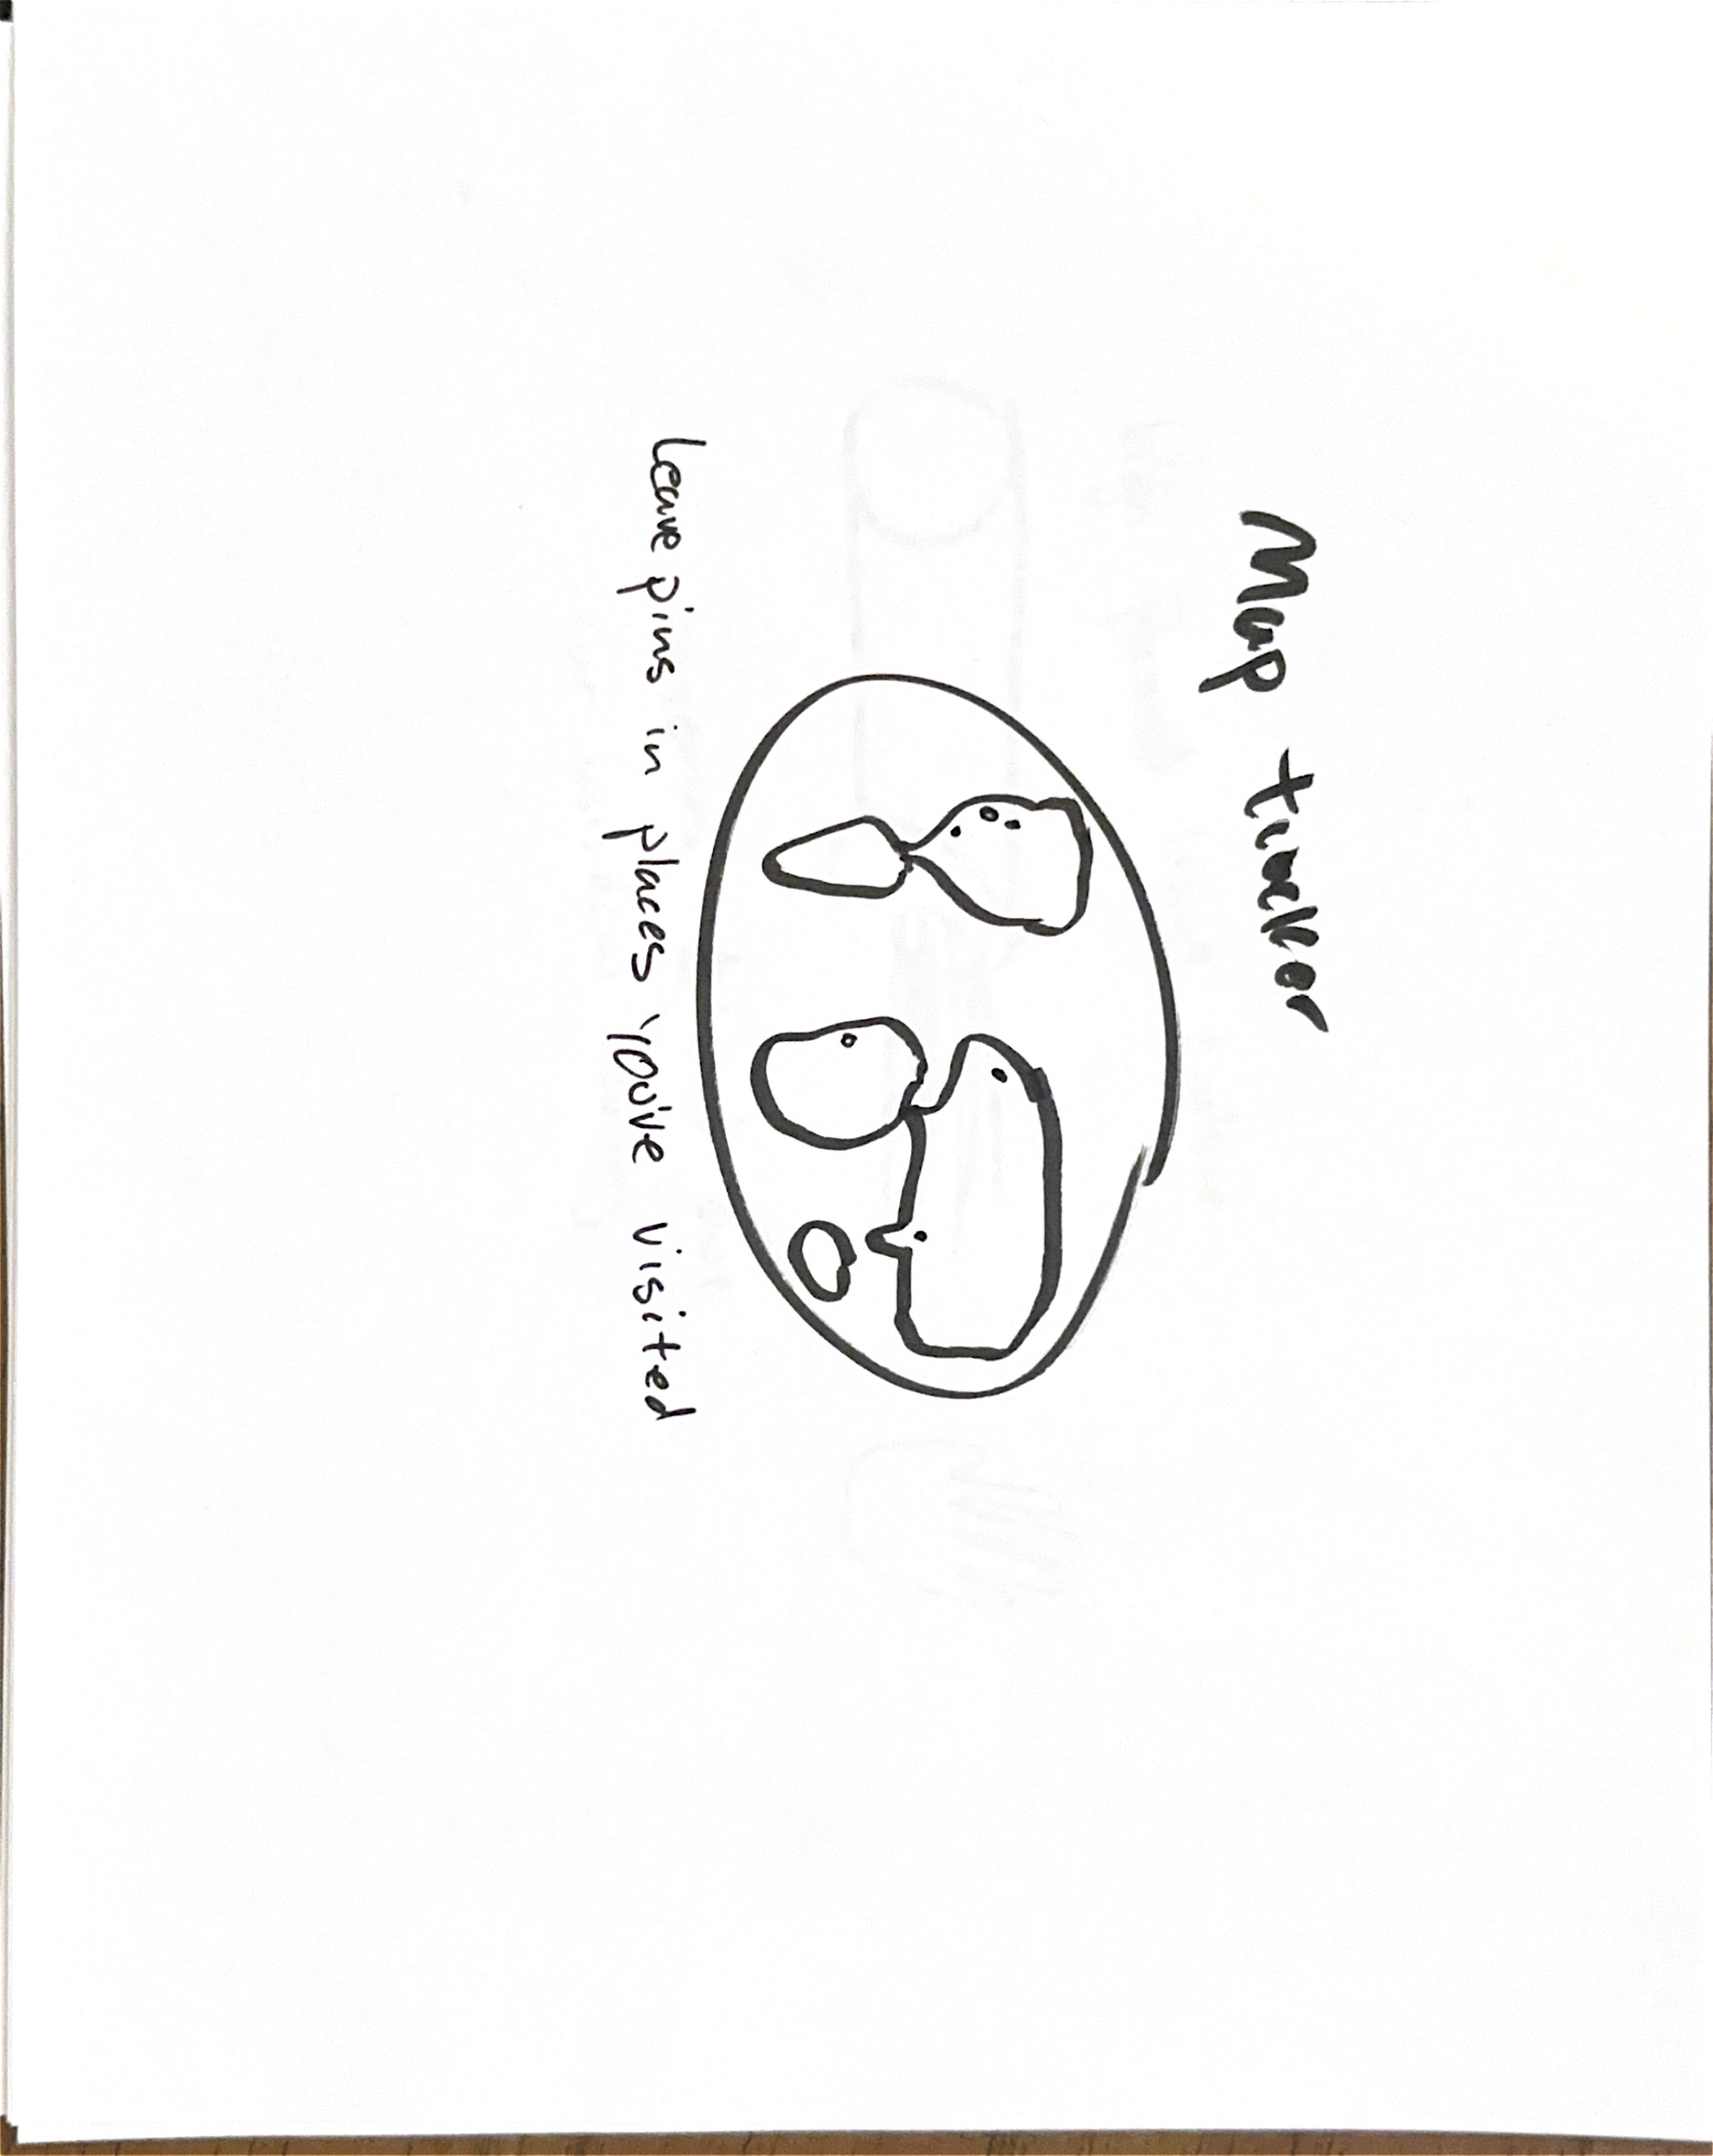 Map tracker
Leave pins in places you've visited